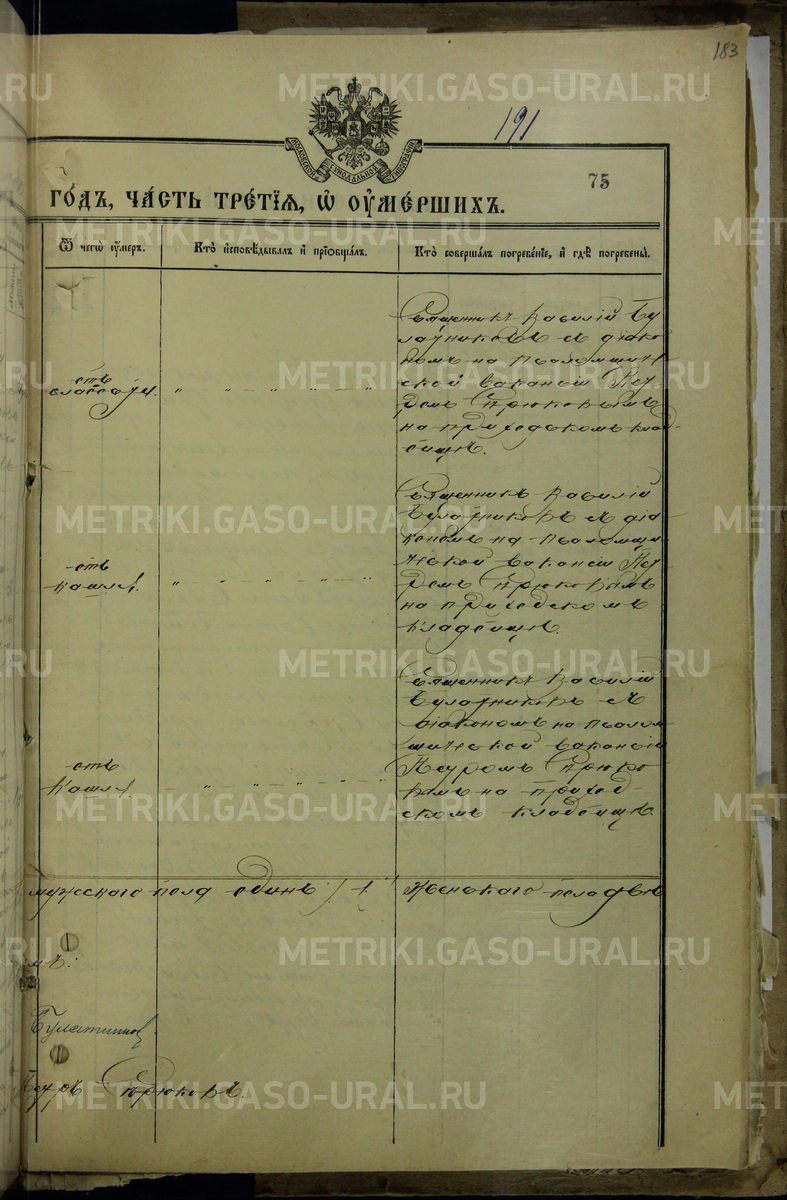 183
191
МОСКОВСКОЙ СѴНОДАЛЬНОЙ ТИПОГРАФІИ
75
ГО́ДЪ, ЧА́СТЬ ТРЕ́ТІѦ, Ѡ҆ ОУ҆МЕ́РШИХЪ.
Ѿ чегѡ̀ оу҆́меръ.
Кто̀ и҆сповѣ́дывалъ и҆ прїѡбща́лъ.
Кто̀ соверша́лъ погребе́нїе, и҆ гдѣ̀ погребены̀.
отъ
слабости
Священникъ Василій Бу
латниковъ съ діако
номъ на псаломщич
ской вакансіи Пет
ромъ Крюковымъ
на приходскомъ клад
бищѣ.
отъ
кашля.
Священникъ Василій
Булатниковъ съ діа
кономъ на псаломщи
ческой вакансіи Пет
ромъ Крюковымъ
на приходскомъ
кладбищѣ.
отъ
кашля.
Священникъ Василій
Булатниковъ съ
діакономъ на псалом
щической вакансіи
Петромъ Крюко
вымъ на приход
скомъ кладбищѣ.
мужескаго пола одинъ /1/
женскаго пола двѣ
мъ:
Булатников
Петръ Крюковъ.
METRIKI.GASO-URAL.RU